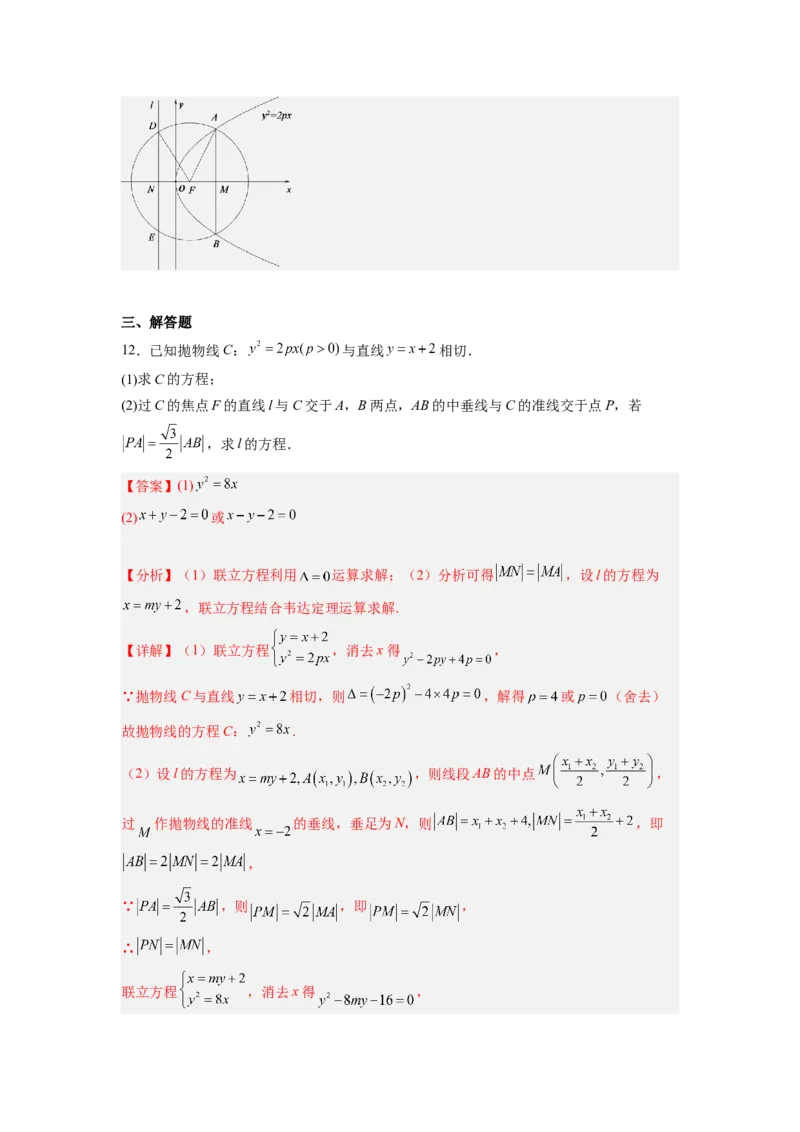 l y
D A y²=2px
N O F M x
E B
三、解答题
12．已知抛物线C：y² = 2px(p > 0)与直线y = x+2相切．
(1)求C的方程；
(2)过C的焦点F的直线l与C交于A，B两点，AB的中垂线与C的准线交于点P，若
|PA| = √3/2 |AB|，求l的方程．
【答案】(1) y² = 8x
(2) x+y−2=0或x−y−2=0
【分析】（1）联立方程利用Δ=0运算求解；（2）分析可得|MN| = |MA|，设l的方程为
x = my+2，联立方程结合韦达定理运算求解.
【详解】（1）联立方程{y = x+2, y² = 2px，消去x得 y²−2py+4p=0，
∵抛物线C与直线y = x+2相切，则Δ=(−2p)²−4×4p=0，解得p=4或p=0（舍去）
故抛物线的方程C：y² = 8x．
（2）设l的方程为x = my+2, A(x₁,y₁), B(x₂,y₂)，则线段AB的中点M((x₁+x₂)/2, (y₁+y₂)/2)，
过M作抛物线的准线x=−2的垂线，垂足为N，则|AB| = x₁+x₂+4, |MN| = (x₁+x₂)/2+2，即
|AB| = 2|MN| = 2|MA|，
∵|PA| = √3/2 |AB|，则|PM| = √2|MA|，即|PM| = √2|MN|，
∴|PN| = |MN|，
联立方程{x = my+2, y² = 8x，消去x得y²−8my−16=0，